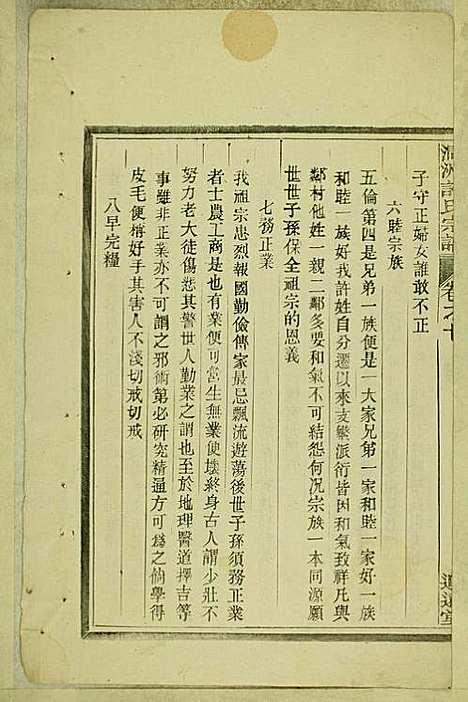 許氏宗譜
卷之十
子守正婦女誰敢不正
六睦宗族
五倫第四是兄弟一族便是一大家兄弟一家和睦一家好一族
和睦一族好我許姓自分遷以來支繁派衍皆因和氣致祥凡與
鄰村他姓一親二鄰多要和氣不可結怨何况宗族一本同源願
世世子孫保全祖宗的恩義
七務正業
我祖宗忠烈報國勤儉傳家最忌飄流遊蕩後世子孫須務正業
者士農工商是也有業便可營生無業便壞終身古人謂少壯不
努力老大徒傷悲其警世人勤業之謂也至於地理醫道擇吉等
事雖非正業亦不可謂之邪術第必研究精通方可爲之倘學得
皮毛便稱好手其害人不淺切戒切戒
八早完糧